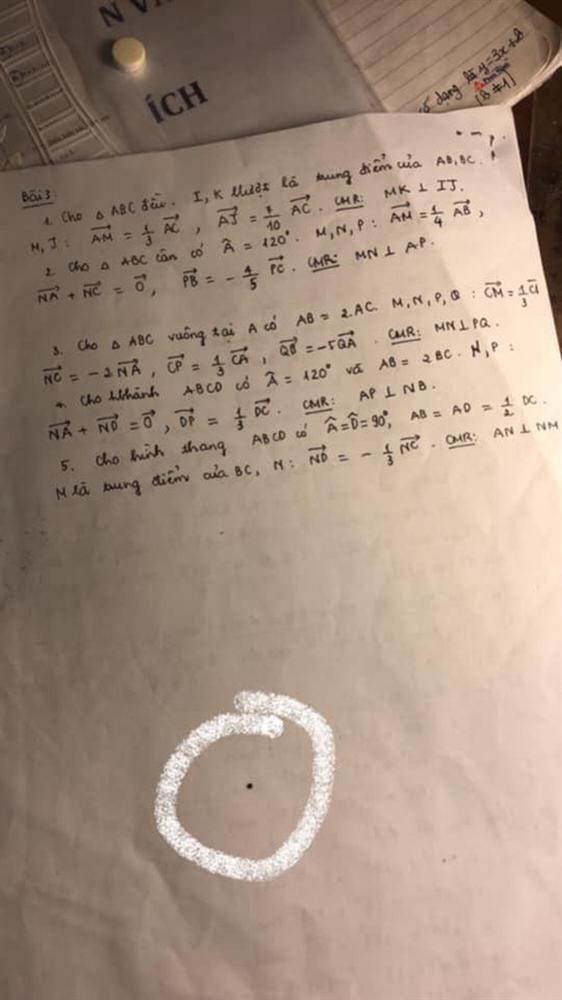 N V
ÍCH
số dạng là y=3x+B
[B ≠ 1]
Bài 3:
1. Cho △ ABC đều. I, K lần lượt là trung điểm của AB, BC.
M, J: \overrightarrow{AM} = \frac{1}{3} \overrightarrow{AC}, \overrightarrow{AJ} = \frac{7}{10} \overrightarrow{AC}. CMR: MK ⊥ IJ.
2. Cho △ ABC cân có Â = 120°. M, N, P: \overrightarrow{AM} = \frac{1}{4} \overrightarrow{AB},
\overrightarrow{NA} + \overrightarrow{NC} = \overrightarrow{O}, \overrightarrow{PB} = -\frac{4}{5} \overrightarrow{PC}. CMR: MN ⊥ AP.
3. Cho △ ABC vuông tại A có AB = 2.AC. M, N, P, Q: \overrightarrow{CM} = \frac{1}{3}
\overrightarrow{NC} = -2\overrightarrow{NA}, \overrightarrow{CP} = \frac{1}{3} \overrightarrow{CA}, \overrightarrow{QB} = -5\overrightarrow{QA}. CMR: MN ⊥ PQ.
4. Cho hbhành ABCD có Â = 120° và AB = 2BC. N, P:
\overrightarrow{NA} + \overrightarrow{ND} = \overrightarrow{O}, \overrightarrow{DP} = \frac{1}{3} \overrightarrow{DC}. CMR: AP ⊥ NB.
5. Cho hình thang ABCD có Â = D̂ = 90°, AB = AD = \frac{1}{2} DC.
M là trung điểm của BC, N: \overrightarrow{ND} = -\frac{1}{3} \overrightarrow{NC}. CMR: AN ⊥ NM